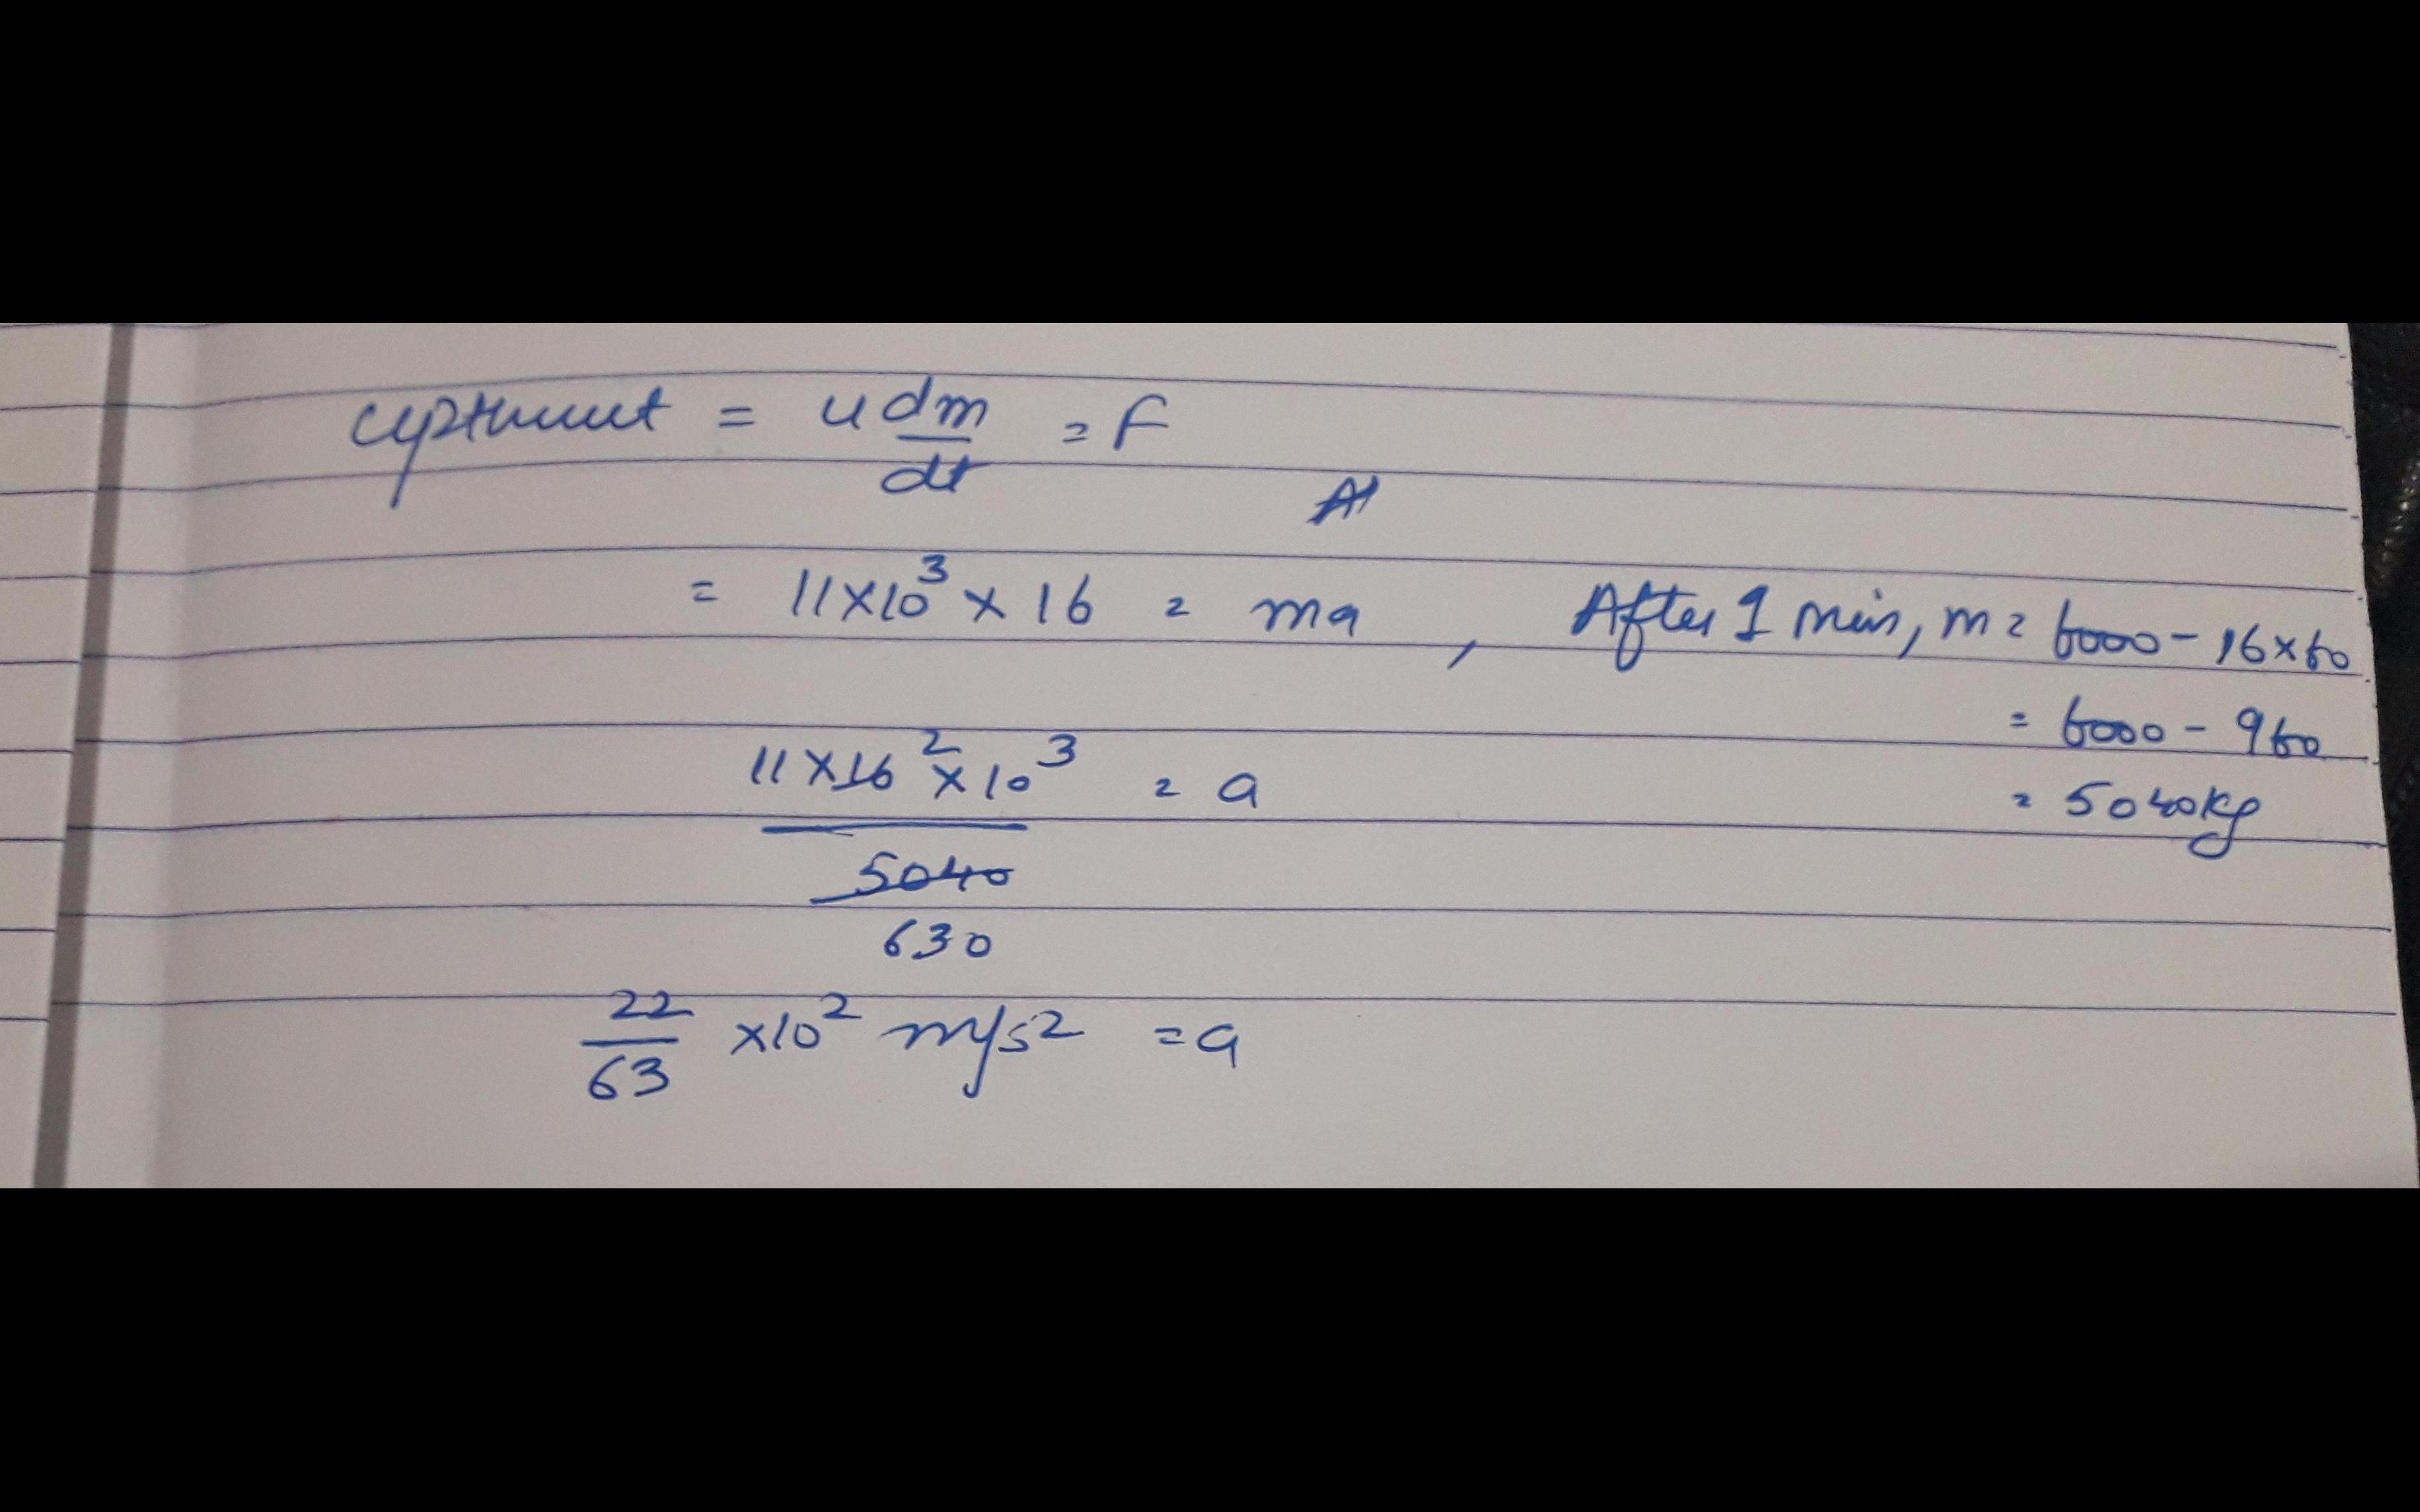 upthrust = u dm/dt = F
= 11×10³ × 16 = ma , After 1 min, m = 6000 - 16×60
= 6000 - 960
= 5040kg
11×16 2 ×10³ / 5040 = a
630
22/63 ×10² m/s² = a